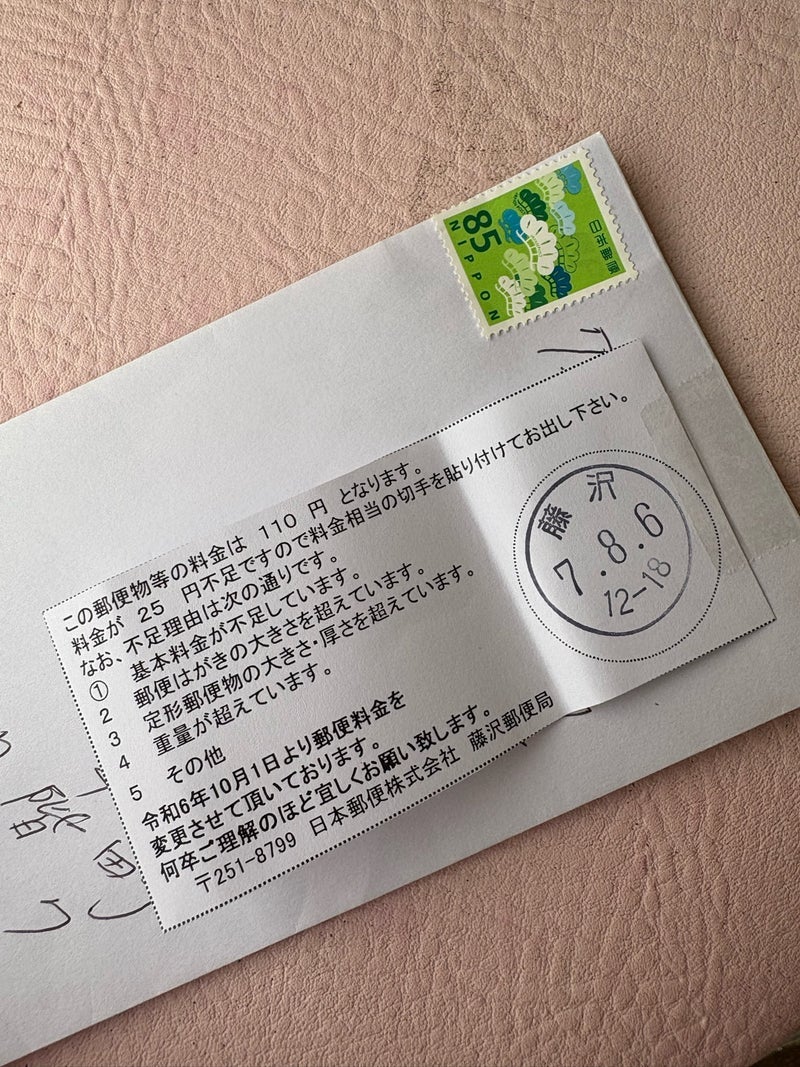 日本郵便
85
NIPPON
この郵便物等の料金は 110 円 となります。
料金が 25 円不足ですので料金相当の切手を貼り付けてお出し下さい。
なお、不足理由は次の通りです。
① 基本料金が不足しています。
2 郵便はがきの大きさを超えています。
3 定形郵便物の大きさ・厚さを超えています。
4 重量が超えています。
5 その他
令和6年10月1日より郵便料金を
変更させて頂いております。
何卒ご理解のほど宜しくお願い致します。
〒251-8799 日本郵便株式会社 藤沢郵便局
藤沢
7.8.6
12-18